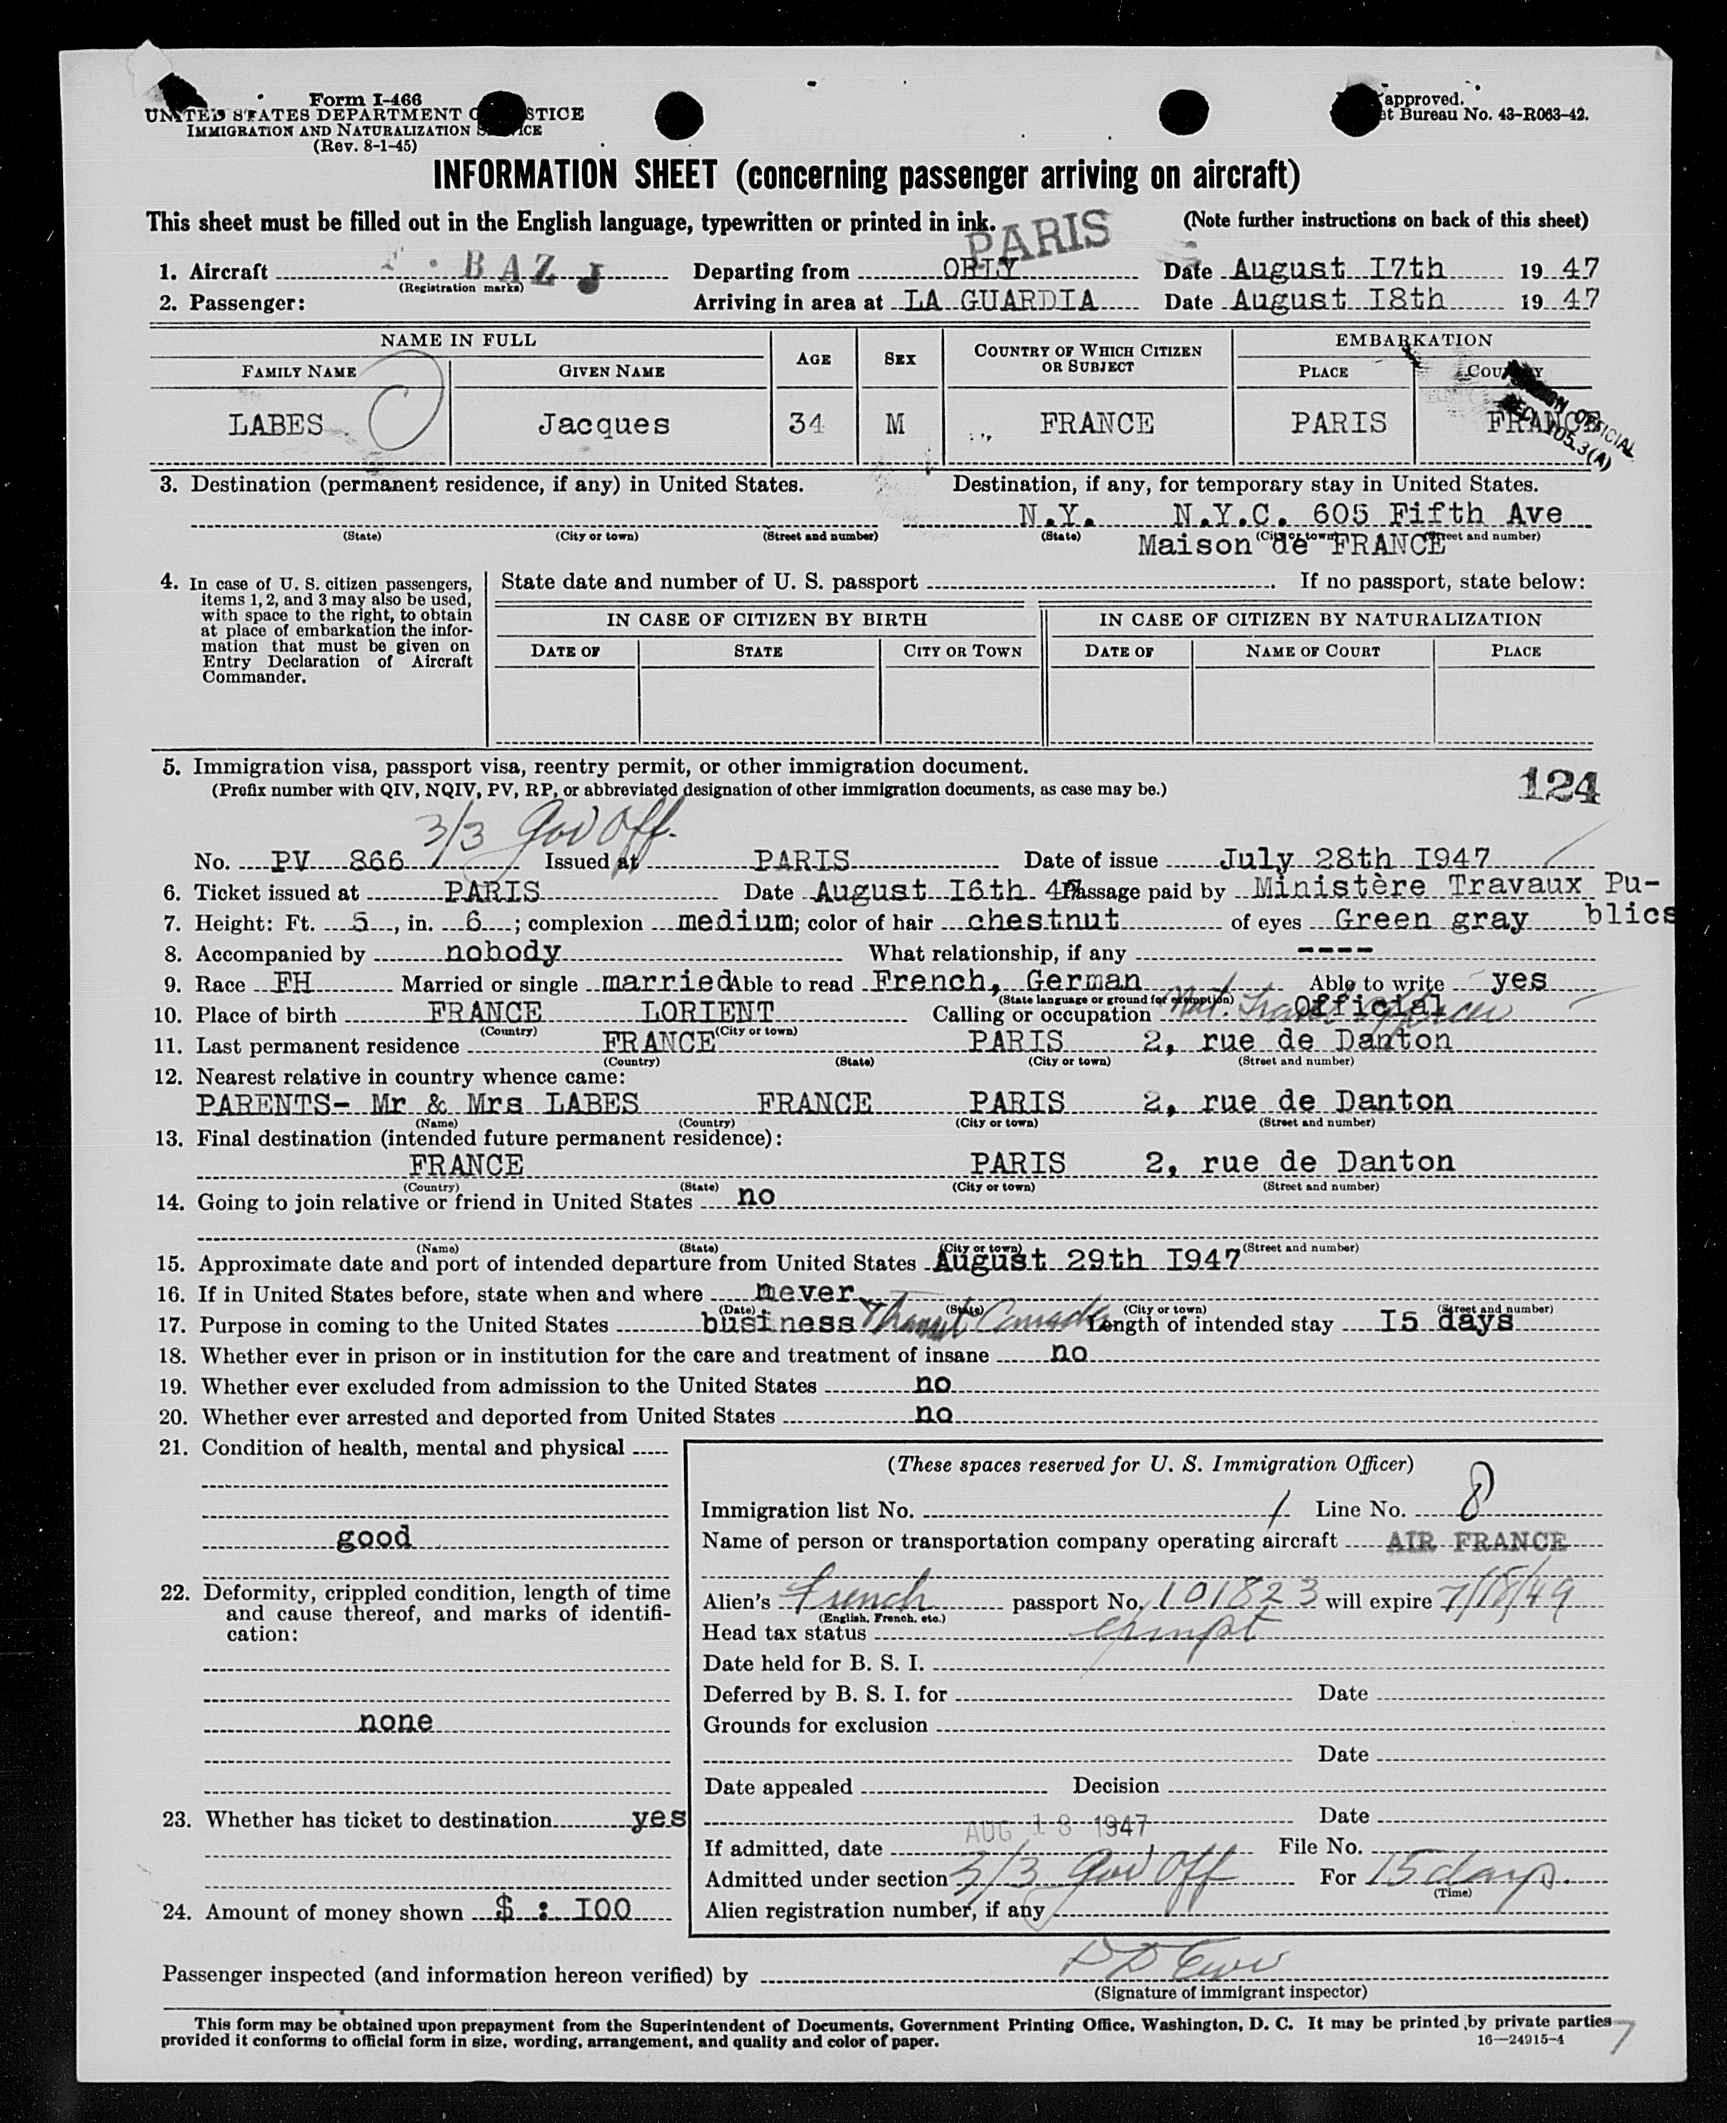 Form I-466
UNITED STATES DEPARTMENT OF JUSTICE
IMMIGRATION AND NATURALIZATION SERVICE
(Rev. 8-1-45)
approved.
Bureau No. 43-R063-42.
INFORMATION SHEET (concerning passenger arriving on aircraft)
This sheet must be filled out in the English language, typewritten or printed in ink. (Note further instructions on back of this sheet)
PARIS
1. Aircraft F. BAZ J Departing from ORLY Date August I7th 19 47
(Registration marks)
2. Passenger: Arriving in area at LA GUARDIA Date August I8th 19 47
NAME IN FULL AGE SEX COUNTRY OF WHICH CITIZEN OR SUBJECT EMBARKATION
FAMILY NAME GIVEN NAME PLACE COUNTRY
LABES Jacques 34 M FRANCE PARIS FRANCE
OFFICIAL
SEC. 105.3(A)
3. Destination (permanent residence, if any) in United States. Destination, if any, for temporary stay in United States.
N.Y. N.Y.C. 605 Fifth Ave
(State) (City or town) (Street and number) (State) (City or town) (Street and number)
Maison de FRANCE
4. In case of U. S. citizen passengers, items 1, 2, and 3 may also be used, with space to the right, to obtain at place of embarkation the information that must be given on Entry Declaration of Aircraft Commander.
State date and number of U. S. passport . If no passport, state below:
IN CASE OF CITIZEN BY BIRTH IN CASE OF CITIZEN BY NATURALIZATION
DATE OF STATE CITY OR TOWN DATE OF NAME OF COURT PLACE
5. Immigration visa, passport visa, reentry permit, or other immigration document.
(Prefix number with QIV, NQIV, PV, RP, or abbreviated designation of other immigration documents, as case may be.)
124
3/3 Gov Off.
No. PV 866 Issued at PARIS Date of issue July 28th I947
6. Ticket issued at PARIS Date August I6th 47 Passage paid by Ministère Travaux Pu-
blics
7. Height: Ft. 5, in. 6; complexion medium; color of hair chestnut of eyes Green gray
8. Accompanied by nobody What relationship, if any ----
9. Race FH Married or single married Able to read French, German Able to write yes
(State language or ground for exemption)
10. Place of birth FRANCE LORIENT Calling or occupation Official
(Country) (City or town)
11. Last permanent residence FRANCE PARIS 2, rue de Danton
(Country) (State) (City or town) (Street and number)
12. Nearest relative in country whence came:
PARENTS- Mr & Mrs LABES FRANCE PARIS 2, rue de Danton
(Name) (Country) (City or town) (Street and number)
13. Final destination (intended future permanent residence):
FRANCE PARIS 2, rue de Danton
(Country) (State) (City or town) (Street and number)
14. Going to join relative or friend in United States no
(Name) (State) (City or town) (Street and number)
15. Approximate date and port of intended departure from United States August 29th I947
16. If in United States before, state when and where never
(Date) (State) (City or town) (Street and number)
17. Purpose in coming to the United States business & Transit Canada Length of intended stay I5 days
18. Whether ever in prison or in institution for the care and treatment of insane no
19. Whether ever excluded from admission to the United States no
20. Whether ever arrested and deported from United States no
21. Condition of health, mental and physical
good
22. Deformity, crippled condition, length of time and cause thereof, and marks of identification:
none
23. Whether has ticket to destination yes
24. Amount of money shown $ : I00
(These spaces reserved for U. S. Immigration Officer)
Immigration list No. 1 Line No. 8
Name of person or transportation company operating aircraft AIR FRANCE
Alien's French passport No. 101823 will expire 7/18/49
(English, French, etc.)
Head tax status exmpt
Date held for B. S. I.
Deferred by B. S. I. for Date
Grounds for exclusion
Date
Date appealed Decision
Date
AUG 18 1947
If admitted, date File No.
Admitted under section 3/3 Gov Off For 15 days.
(Time)
Alien registration number, if any
Passenger inspected (and information hereon verified) by
(Signature of immigrant inspector)
This form may be obtained upon prepayment from the Superintendent of Documents, Government Printing Office, Washington, D. C. It may be printed by private parties
provided it conforms to official form in size, wording, arrangement, and quality and color of paper. 16—24915-4
7